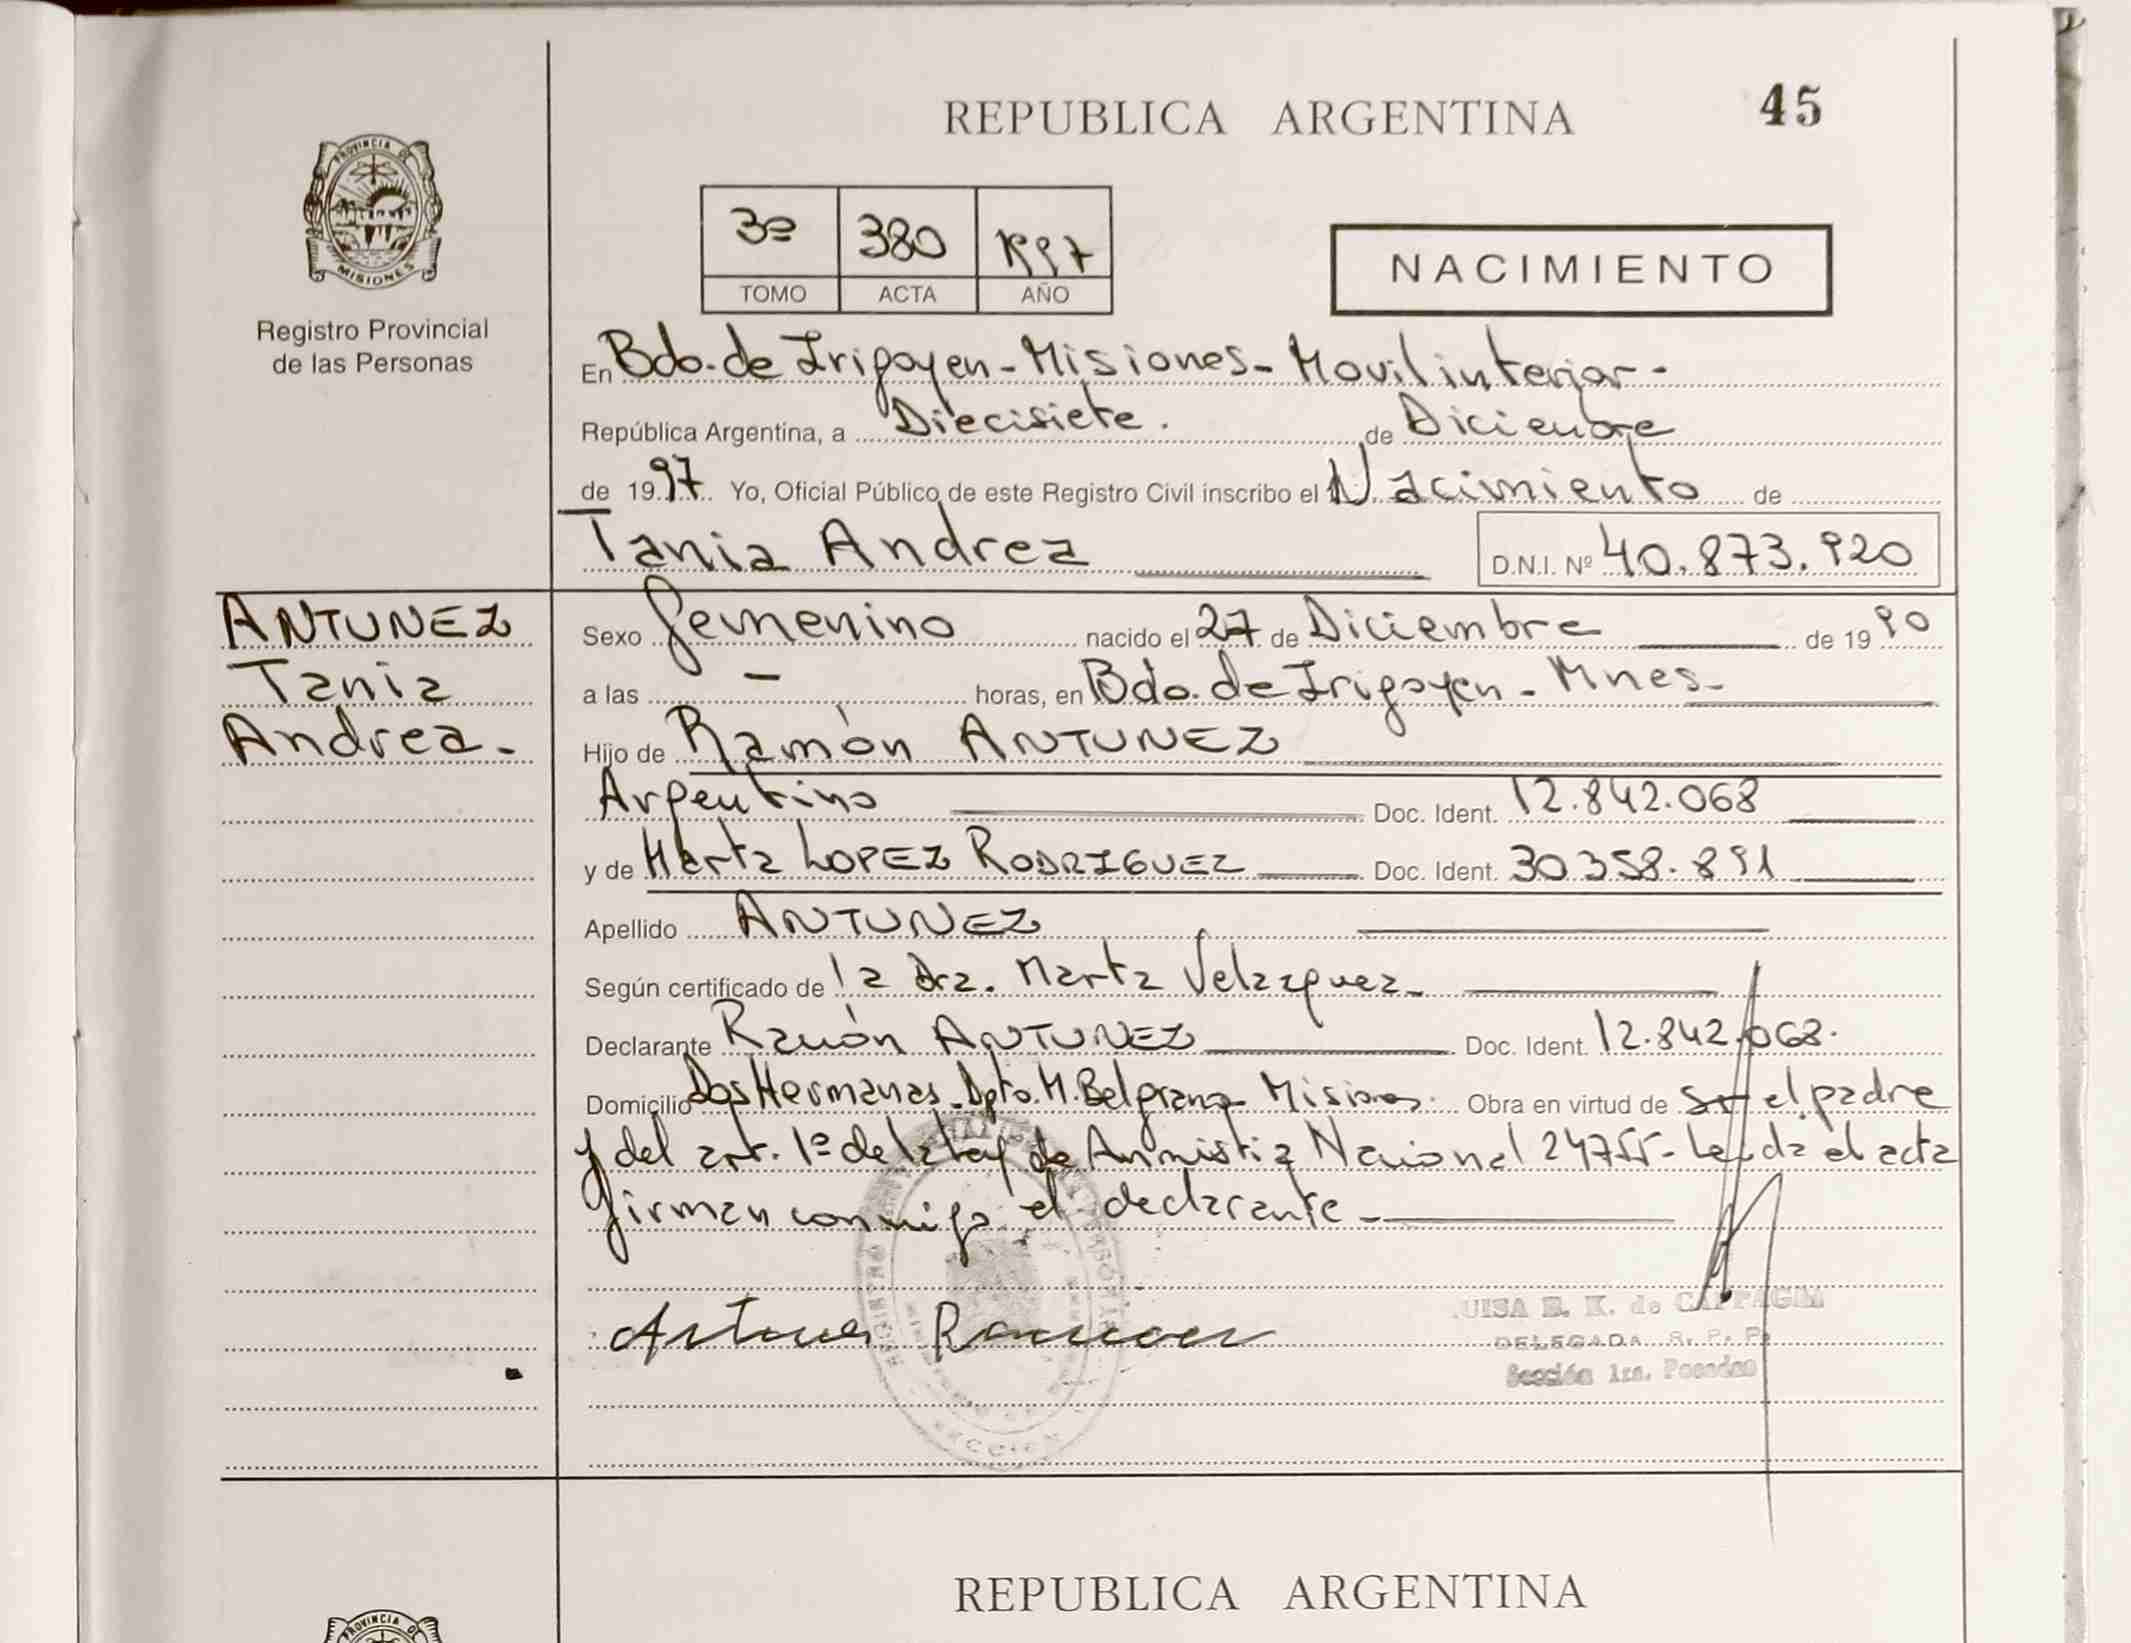 REPUBLICA ARGENTINA
45
PROVINCIA DE
MISIONES
Registro Provincial
de las Personas
3º 380 1997
TOMO ACTA AÑO
NACIMIENTO
En Bdo. de Irigoyen - Misiones - Movil interior -
República Argentina, a Diecisiete. de Diciembre
de 1997 Yo, Oficial Público de este Registro Civil inscribo el Nacimiento de
Tania Andrea D.N.I. Nº 40.873.920
ANTUNEZ
Tania
Andrea -
Sexo Femenino nacido el 27 de Diciembre de 1990
a las - horas, en Bdo. de Irigoyen - Mnes -
Hijo de Ramón ANTUNEZ
Argentino Doc. Ident. 12.842.068
y de Marta LOPEZ RODRIGUEZ Doc. Ident. 30.358.891
Apellido ANTUNEZ
Según certificado de la Dra. Marta Velazquez -
Declarante Ramón ANTUNEZ Doc. Ident. 12.842.068.
Domicilio Dos Hermanas - Dpto. M. Belgrano - Misiones Obra en virtud de ser el padre
y del art. 1º de la ley de Anmistia Nacional 24755 - Leida el acta
firman conmigo el declarante -
Antunez Ramon
UISA E. K. de
DELEGADA R. P. P.
Sección 1ra. Posadas
REPUBLICA ARGENTINA
PROVINCIA DE